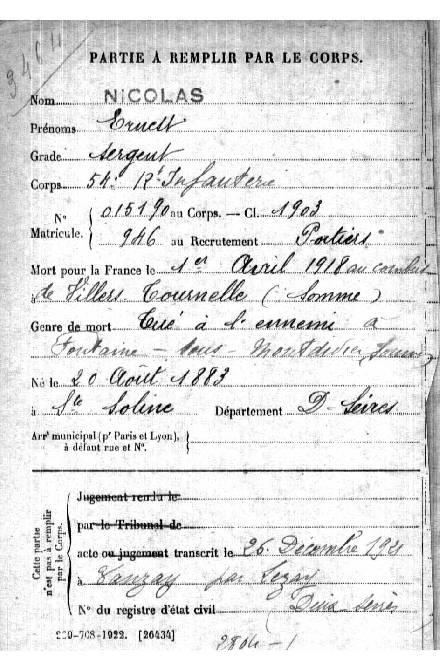 3464
PARTIE À REMPLIR PAR LE CORPS.
Nom NICOLAS
Prénoms Ernest
Grade Sergent
Corps 54e Rt Infanterie
N° Matricule. { 015190 au Corps. — Cl. 1903
946 au Recrutement Poitiers
Mort pour la France le 1er Avril 1918 au combat
de Villers Tournelle (Somme)
Genre de mort Tué à l'ennemi à
Fontaine-sous-Montdidier, Somme
Né le 20 Août 1883
à Ste Soline Département D-Sèvres
Arrt municipal (pr Paris et Lyon), à défaut rue et N°. {
Cette partie n'est pas à remplir par le Corps.
Jugement rendu le
par le Tribunal de
acte ou jugement transcrit le 26 Décembre 1921
à Vanzay par Lezay
N° du registre d'état civil (Deux Sèvres)
299-708-1922. [26434]